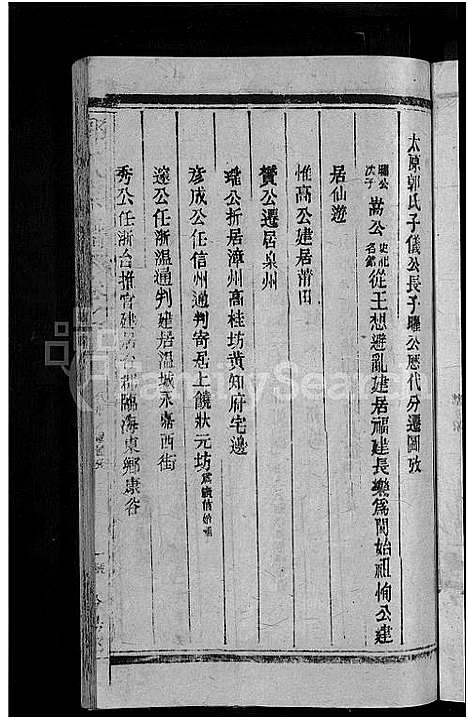 太原郭氏子儀公長子曜公歷代分遷圖攷
曜公次子嵩公史紀名鎔從王想避亂建居福建長樂爲閩始祖恂公建
居仙遊
惟高公建居莆田
贊公遷居泉州
瓏公折居漳州高桂坊黄知府宅邊
彦成公任信州通判寄居上饒狀元坊爲廣信始祖
逵公任浙溫通判建居溫城永嘉西街
秀公任浙台推官建居台郡臨海東鄉康谷
FamilySearch